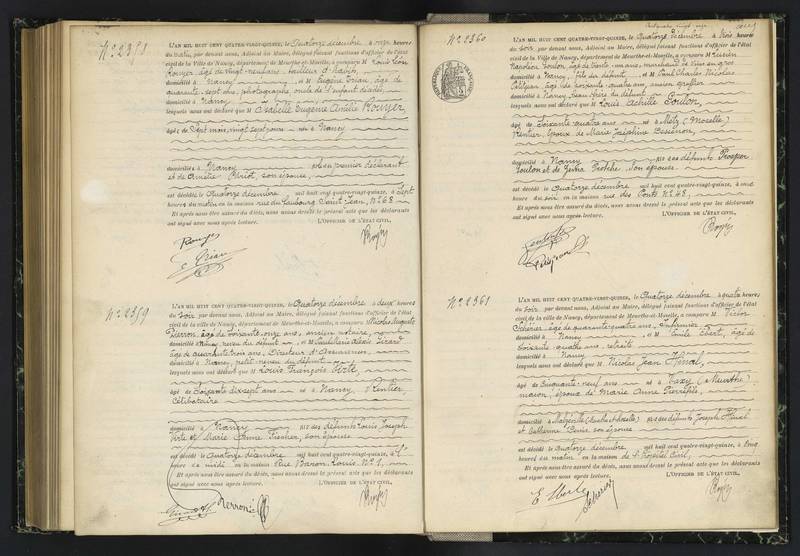 N° 2358
L'AN MIL HUIT CENT QUATRE-VINGT-QUINZE, le Quatorze décembre à onze heures
du matin, par devant nous, Adjoint au Maire, délégué faisant fonctions d'officier de l'état
civil de la Ville de Nancy, département de Meurthe-et-Moselle, a comparu M Louis Léon
Rouyer, âgé de vingt-neuf ans, tailleur d'habits,
domicilié à Nancy et M Eugène Trian, âgé de
quarante-sept ans, photographe, oncle de l'enfant décédé,
domicilié à Nancy
lesquels nous ont déclaré que Isabelle Eugène Amélie Rouyer,
âgé de Sept mois, vingt sept jours né à Nancy
domicilié à Nancy fils du premier déclarant
et de Amélie son épouse,
est décédé le Quatorze décembre mil huit cent quatre-vingt-quinze, à Sept
heures du matin en sa maison rue du Faubourg Saint Jean, N° 68
Et après nous être assuré du décès, nous avons dressé le présent acte que les déclarants
ont signé avec nous après lecture. L'OFFICIER DE L'ÉTAT CIVIL,
Rouyer
N° 2359
L'AN MIL HUIT CENT QUATRE-VINGT-QUINZE, le Quatorze décembre à deux heures
du soir par devant nous, Adjoint au Maire, délégué faisant fonctions d'officier de l'état
civil de la ville de Nancy, département de Meurthe-et-Moselle, a comparu M Nicolas Auguste
Pierron, âgé de soixante onze ans, ancien notaire,
domicilié à Nancy, neveu du défunt et M Alexis Girard
âgé de quarante trois ans, Directeur d'Assurances
domicilié à Nancy, petit neveu du défunt
lesquels nous ont déclaré que M Louis François
âgé de Soixante dix sept ans né à Nancy, Rentier,
célibataire
domicilié à Nancy fils des défunts Louis Joseph
et Marie Anne Fischer, son épouse
est décédé le Quatorze décembre mil huit cent quatre-vingt-quinze, à
heure de midi en sa maison Rue Baron Louis N° 1,
Et après nous être assuré du décès, nous avons dressé le présent acte que les déclarants
ont signé avec nous après lecture. L'OFFICIER DE L'ÉTAT CIVIL,
N° 2360
L'AN MIL HUIT CENT QUATRE-VINGT-QUINZE, le Quatorze décembre à trois heures
du soir, par devant nous, Adjoint au Maire, délégué faisant fonctions d'officier de l'état
civil de la Ville de Nancy, département de Meurthe-et-Moselle, a comparu M Lucien
Napoléon Toulon, âgé de trente un ans, marchand de vins en gros
domicilié à Nancy, fils du défunt et M Paul Charles Nicolas
âgé de soixante-quatre ans, ancien greffier
domicilié à Nancy, beau-frère du défunt
lesquels nous ont déclaré que M Louis Achille Toulon,
âgé de Soixante quatre ans né à Metz (Moselle)
Rentier, époux de Marie Joséphine
domicilié à Nancy fils des défunts Prosper
Toulon et de son épouse
est décédé le Quatorze décembre mil huit cent quatre-vingt-quinze, à une
heure du soir en sa maison rue des Ponts N° 48,
Et après nous être assuré du décès, nous avons dressé le présent acte que les déclarants
ont signé avec nous après lecture. L'OFFICIER DE L'ÉTAT CIVIL,
N° 2361
L'AN MIL HUIT CENT QUATRE-VINGT-QUINZE, le Quatorze décembre à quatre heures
du soir par devant nous, Adjoint au Maire, délégué faisant fonctions d'officier de l'état
civil de la ville de Nancy, département de Meurthe-et-Moselle, a comparu M Victor
Scherier, âgé de quarante-quatre ans, Infirmier
domicilié à Nancy et M Emile Ebert, âgé de
soixante quatre ans, retraité
domicilié à Nancy
lesquels nous ont déclaré que M Nicolas Jean
âgé de Cinquante-neuf ans né à (Meurthe)
maçon, époux de Marie Anne
domicilié à Malzéville (Meurthe et Moselle) fils des défunts Joseph
et Catherine son épouse
est décédé le Quatorze décembre mil huit cent quatre-vingt-quinze, à
heures du matin en sa maison de l'Hôpital Civil,
Et après nous être assuré du décès, nous avons dressé le présent acte que les déclarants
ont signé avec nous après lecture. L'OFFICIER DE L'ÉTAT CIVIL,